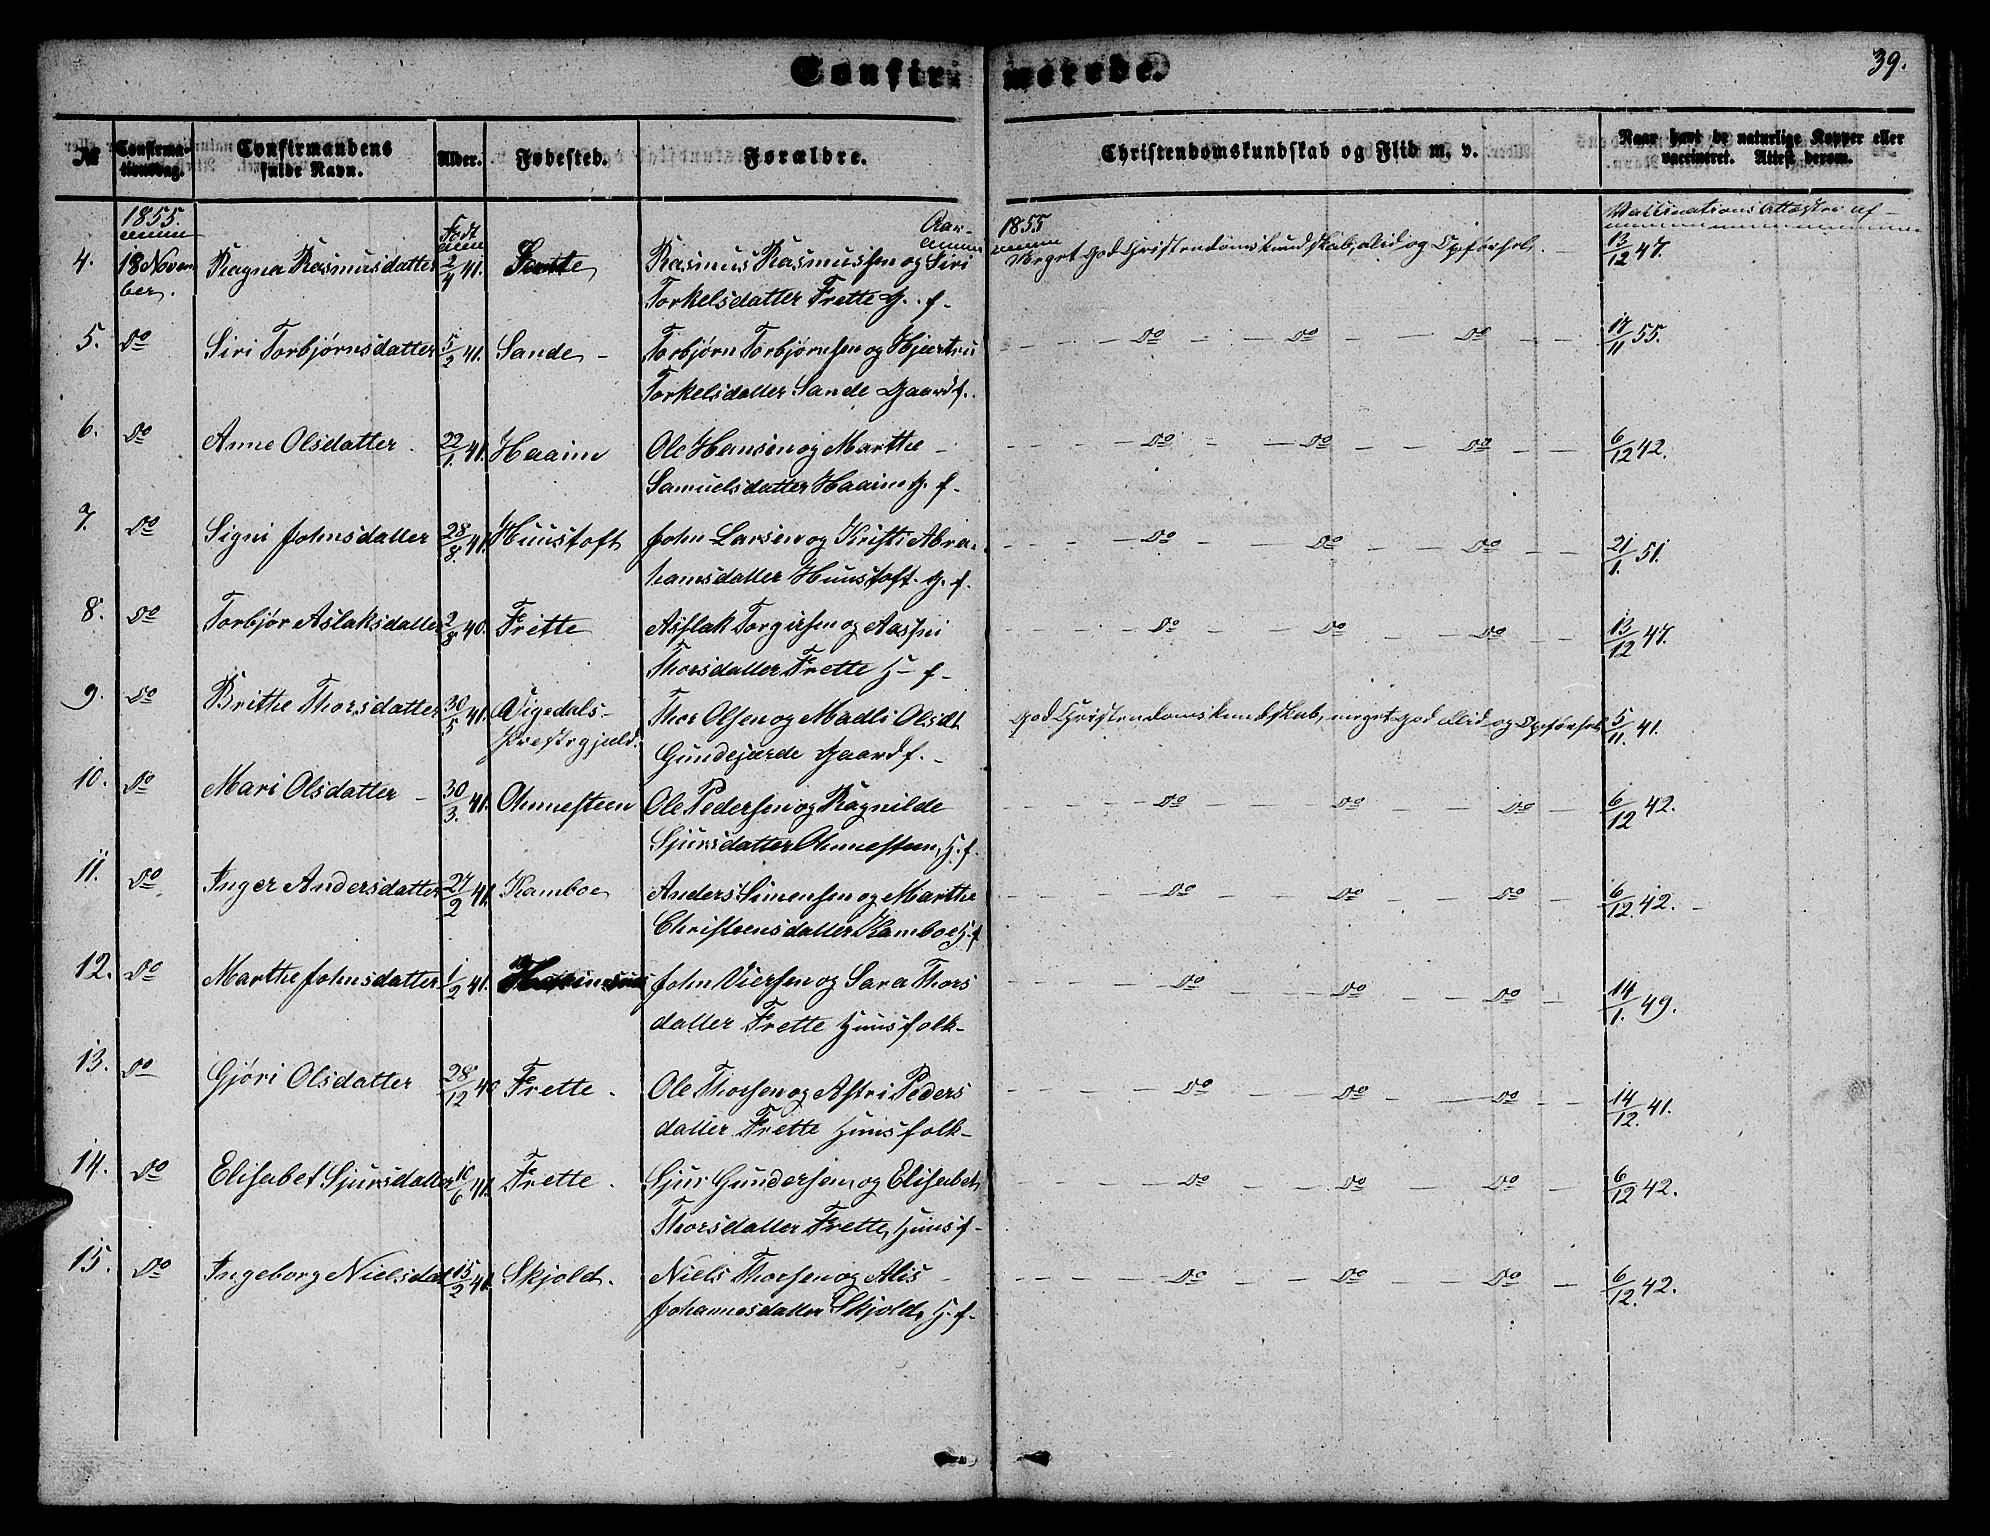 Confirmerede.
39.
№ Confirmationsdag. Confirmandens fulde Navn. Alder. Fødested. Forældre. Christendomskundskab og Flid m. v. Naar havt de naturlige Kopper eller vaccineret. Attest derom.
1855. Født Aar 1855 Vaccinations Attester af
4. 18 November. Ragna Rasmusdatter 2/4 41. Rasmus Rasmussen og Siri Meget god Christendomskundskab, Flid og Opførsel. 13/12 47.
Torkelsdatter Frette G. f.
5. Do Siri Torbjørnsdatter 5/2 41. Sande Torbjørn Torbjørnsen og Hjertru - Do - Do - Do 17/11 55.
Torkelsdatter Sande Gaardf.
6. Do Anne Olsdatter 22/1. 41. Haaim Ole Hansen og Marthe - Do - Do - Do 6/12 42.
Samuelsdatter Haaim G. f.
7. Do Signi Johnsdatter 28/8. 41. Huustoft John Larsen og Kristi Abra- - Do - Do - Do 21/1. 51.
hamsdatter Huustoft G. f.
8. Do Torbjør Aslaksdatter 2/8 40. Frette Asslak Torgiersen og Aasni - Do - Do - Do 13/12 47.
Thorsdatter Frette H. f.
9. Do Brithe Thorsdatter 30/5 41. Vigedals- Thor Olsen og Madli Olsdt. God Christendomskundskab, meget god Flid og Opførsel 5/11. 41.
Prestegjæld. Gundejærde Gaardf.
10. Do Mari Olsdatter 30/3. 41. Ønnesteen Ole Pedersen og Ragnilde - Do - Do - Do 6/12 42.
Sjursdatter Ønnesteen, H. f.
11. Do Inger Andersdatter 27/2 41. Kamboe Anders Simensen og Marthe - Do - Do - Do 6/12. 42.
Christensdatter Kamboe H. f.
12. Do Marthe Johnsdatter 1/2 41. John Viersen og Sara Thors - Do - Do - Do 14/1. 49.
datter Frette Huusfolk
13. Do Gjøri Olsdatter 28/12 40 Frette. Ole Thorsen og Astri Peders - Do - Do - Do 14/12. 41.
datter Frette Huusfolk
14. Do Elisabet Sjursdatter 10/6 41. Frette. Sjur Gundersen og Elisabet - Do - Do - Do 6/12 42.
Thorsdatter Frette, Huusf
15. Do Ingeborg Nielsdat 15/2 41. Skjold. Niels Thorsen og Alis - Do - Do - Do 6/12. 42.
Johannesdatter Skjold, H. f.